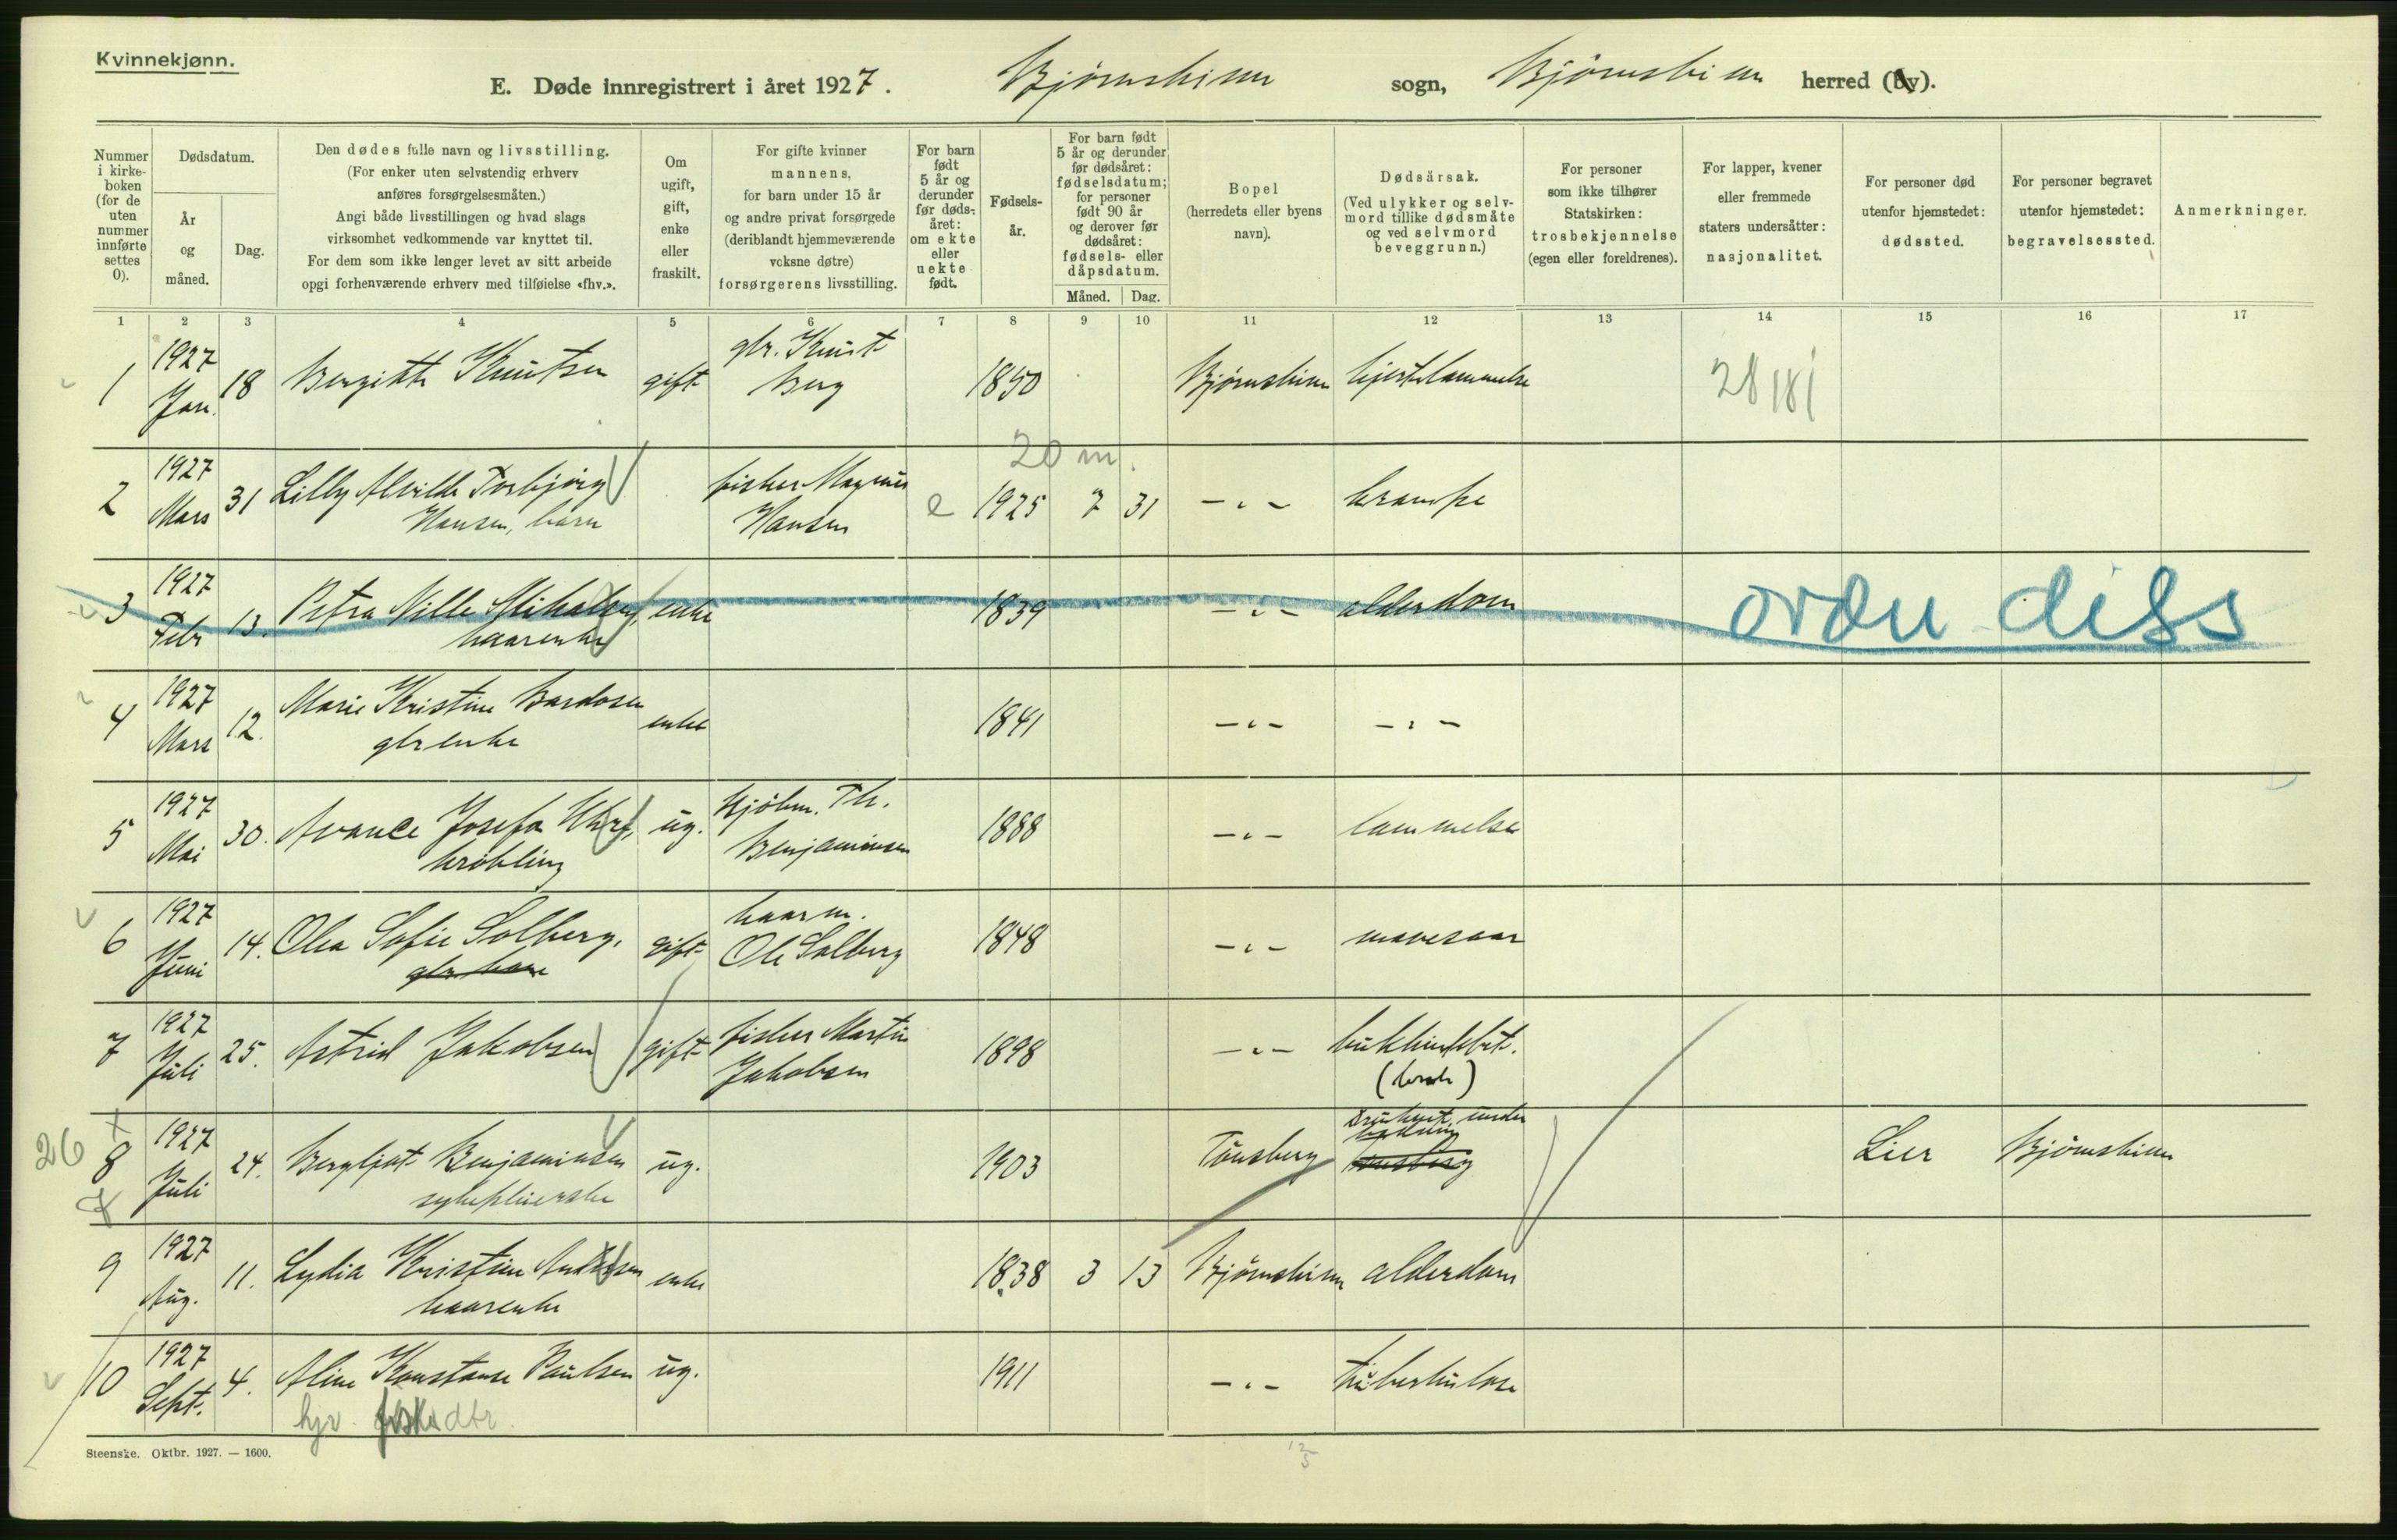 Kvinnekjønn.
E. Døde innregistrert i året 1927. Bjørnskinn sogn, Bjørnskinn herred (by).
Nummer i kirkeboken (for de uten nummer innførte settes 0).
Dødsdatum.
År og måned.
Dag.
Den dødes fulle navn og livsstilling.
(For enker uten selvstendig erhverv
anføres forsørgelsesmåten.)
Angi både livsstillingen og hvad slags
virksomhet vedkommende var knyttet til.
For dem som ikke lenger levet av sitt arbeide
opgi forhenværende erhverv med tilføielse «fhv.».
Om ugift, gift, enke eller fraskilt.
For gifte kvinner
mannens,
for barn under 15 år
og andre privat forsørgede
(deriblandt hjemmeværende
voksne døtre)
forsørgerens livsstilling.
For barn født 5 år og derunder før dødsåret: om ekte eller uekte født.
Fødselsår.
For barn født 5 år og derunder før dødsåret: fødselsdatum; for personer født 90 år og derover før dødsåret: fødsels- eller dåpsdatum.
Måned. Dag.
Bopel
(herredets eller byens
navn).
Dødsårsak.
(Ved ulykker og selvmord tillike dødsmåte og ved selvmord beveggrunn.)
For personer
som ikke tilhører
Statskirken:
trosbekjennelse
(egen eller foreldrenes).
For lapper, kvener
eller fremmede
staters undersåtter:
nasjonalitet.
For personer død
utenfor hjemstedet:
dødssted.
For personer begravet
utenfor hjemstedet:
begravelsessted.
Anmerkninger.
1 2 3 4 5 6 7 8 9 10 11 12 13 14 15 16 17
1 1927 Jan. 18 Bergitte Knutsen gift gbr. Knut Berg 1850 Bjørnskinn hjertelammelse 28 181
20 m.
2 1927 Mars 31 Lilly Alvilde Torbjørg Hansen, barn fisker Magnus Hansen e 1925 7 31 -"- krampe
3 1927 Febr 13. Petra Nille Mikalsen, kaarenke enke 1839 -"- alderdom ordn diss
4 1927 Mars 12. Marie Kristine Bardosen gbrenke enke 1841 -"- -"-
5 1927 Mai 30. Avance Josefa krøbling ug. Kjøbm. Th. Benjaminsen 1888 -"- lammelse
6 1927 Juni 14. Olea Sofie Solberg, gift kaarm. Ole Solberg 1848 -"- mavesaar
7 1927 Juli 25. Astrid Jakobsen gift fisker Martin Jakobsen 1898 -"- bukhinnebet.
26 8 1927 Juli 24. Bergljot Benjaminsen sykepleierske ug. 1903 Tønsberg Druknet under badning Lier Bjørnskinn
9 1927 Aug. 11. Lydia Kristine kaarenke enke 1838 3 13 Bjørnskinn alderdom
10 1927 Sept. 4. Aline Konstanse Paulsen ug. 1911 -"- tuberkulose
hjv. fiskdtr.
Steenske. Oktbr. 1927. — 1600.